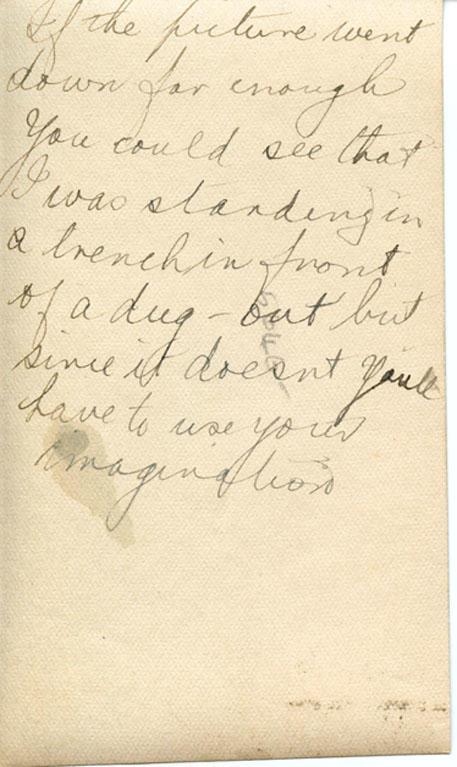 If the picture went
down far enough
You could see that
I was standing in
a trench in front
of a dug-out but
since it doesnt Youll
have to use your
imagination